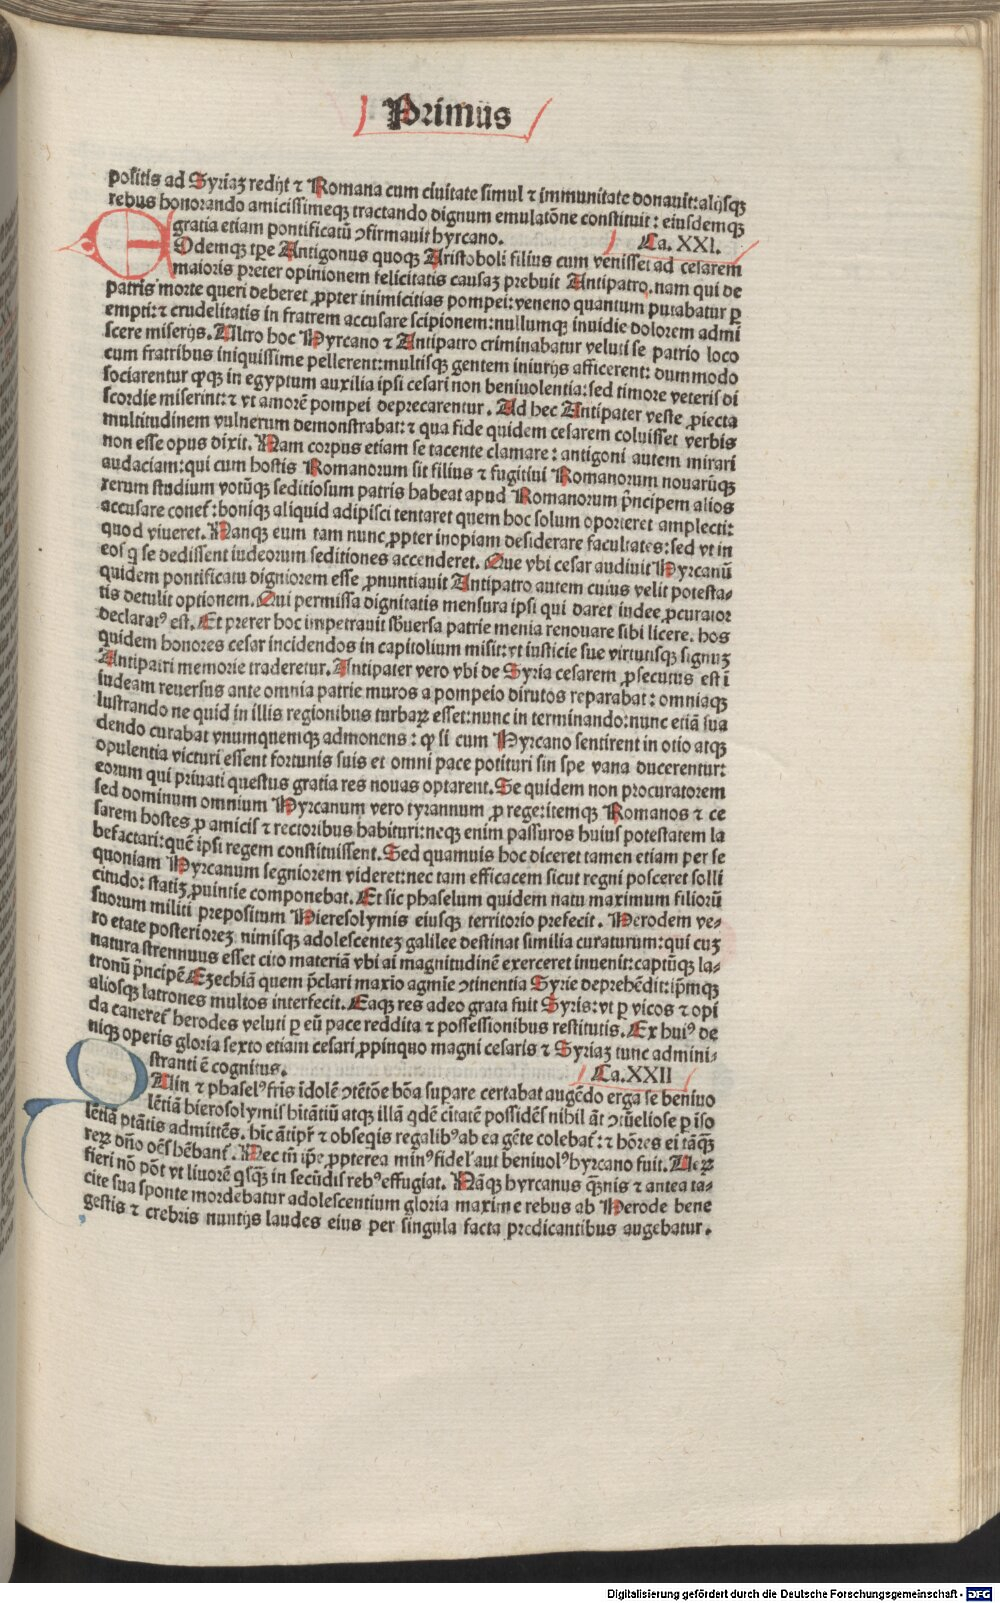 Primus
positis ad Syriaꝫ redijt ⁊ Romana cum ciuitate simul ⁊ immunitate donauit: alijsqꝫ
rebus honorando amicissimeqꝫ tractando dignum emulatōne constituit: eiusdemqꝫ
gratia etiam pontificatū ꝯfirmauit hyrcano.
Ca. XXI.
EOdemqꝫ tꝑe Antigonus quoqꝫ Aristoboli filius cum venisset ad cesarem
maioris preter opinionem felicitatis causaꝫ prebuit Antipatro. nam qui de
patris morte queri deberet ꝓpter inimicitias pompei: veneno quantum putabatur ꝑ
empti: ⁊ crudelitatis in fratrem accusare scipionem: nullumqꝫ inuidie dolorem admi
scere miserijs. Altro hoc Hyrcano ⁊ Antipatro criminabatur veluti se patrio loco
cum fratribus iniquissime pellerent: multisqꝫ gentem iniurijs afficerent: dummodo
sociarentur ꝙqꝫ in egyptum auxilia ipsi cesari non beniuolentia: sed timore veteris di
scordie miserint: ⁊ vt amorē pompei deprecarentur. Ad hec Antipater veste ꝓiecta
multitudinem vulnerum demonstrabat: ⁊ qua fide quidem cesarem coluisset verbis
non esse opus dixit. Nam corpus etiam se tacente clamare: antigoni autem mirari
audaciam: qui cum hostis Romanorum sit filius ⁊ fugitiui Romanorum nouarūqꝫ
rerum studium votūqꝫ seditiosum patris habeat apud Romanorum p̄ncipem alios
accusare coneť: boniqꝫ aliquid adipisci tentaret quem hoc solum oporteret amplecti:
quod viueret. Nanqꝫ eum tam nunc ꝓpter inopiam desiderare facultates: sed vt in
eos q̄ se dedissent iudeorum seditiones accenderet. Que vbi cesar audiuit Hyrcanū
quidem pontificatu digniorem esse ꝓnuntiauit Antipatro autem cuius velit potesta-
tis detulit optionem. Qui permissa dignitatis mensura ipsi qui daret iudee ꝓcurator
declaratꝰ est. Et preter hoc impetrauit sb̄uersa patrie menia renouare sibi licere. hos
quidem honores cesar incidendos in capitolium misit: vt iusticie sue virtutisqꝫ signuꝫ
Antipatri memorie traderetur. Antipater vero vbi de Syria cesarem ꝓsecutus est ī
iudeam reuersus ante omnia patrie muros a pompeio dirutos reparabat: omniaqꝫ
lustrando ne quid in illis regionibus turbaꝝ esset: nunc in terminando: nunc etiā sua
dendo curabat vnumquemqꝫ admonens: ꝙ si cum Hyrcano sentirent in otio atqꝫ
opulentia victuri essent fortunis suis et omni pace potituri sin spe vana ducerentur:
eorum qui priuati questus gratia res nouas optarent. Se quidem non procuratorem
sed dominum omnium Hyrcanum vero tyrannum ꝓ rege: itemqꝫ Romanos ⁊ ce
sarem hostes ꝓ amicis ⁊ rectoribus habituri: neqꝫ enim passuros huius potestatem la
befactari: quē ipsi regem constituissent. Sed quamuis hoc diceret tamen etiam per se
quoniam Hyrcanum segniorem videret: nec tam efficacem sicut regni posceret solli
citudo: statiꝫ ꝓuintie componebat. Et sic phaselum quidem natu maximum filiorū
suorum militi prepositum Hierosolymis eiusqꝫ territorio prefecit. Herodem ve-
ro etate posterioreꝫ nimisqꝫ adolescenteꝫ galilee destinat similia curaturum: qui cuꝫ
natura strennuus esset cito materiā vbi ai magnitudinē exerceret inuenit: captūqꝫ la-
tronū p̄ncipē Ezechiā quem p̄clari maxio agmie ꝯtinentia Syrie deprehēdit: ip̄mqꝫ
aliosqꝫ latrones multos interfecit. Eaqꝫ res adeo grata fuit Syris: vt ꝑ vicos ⁊ opi
da canereť herodes veluti ꝑ eū pace reddita ⁊ possessionibus restitutis. Ex huiꝰ de
niqꝫ operis gloria sexto etiam cesari ꝓpinquo magni cesaris ⁊ Syriaꝫ tunc admini-
stranti ē cognitus.
Ca. XXII
Alin ⁊ phaselꝰ fris īdolē ꝯtētōe bōa supare certabat augēdo erga se beniuo
lētiā hierosolymis hītātiū atqꝫ illā qdē citatē possidēs nihil āt ꝯtūeliose ꝑ iso
lētiā ptātis admittēs. hic ātip̄r ⁊ obseqis regalibꝰ ab ea gēte colebať: ⁊ hōres ei tāqꝫ
reꝝ dn̄o oēs hēbanť. Nec tn̄ ip̄e ꝓpterea minꝰ fidelꝭ aut beniuolꝰ hyrcano fuit. Ueꝝ
fieri nō pōt vt liuorē qsqꝫ in secūdis rebꝰ effugiat. Nāqꝫ hyrcanus quāuis ⁊ antea ta-
cite sua sponte mordebatur adolescentium gloria maxime rebus ab Herode bene
gestis ⁊ crebris nuntijs laudes eius per singula facta predicantibus augebatur.
Digitalisierung gefördert durch die Deutsche Forschungsgemeinschaft - DFG